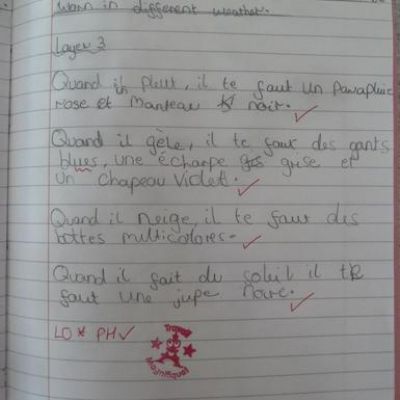 worn in different weather.
Layer 3
Quand il pleut, il te faut un parapluie
rose et manteau noir.
Quand il gèle, il te faut des gants
blues, une écharpe grise et
un chapeau violet.
Quand il neige, il te faut des
bottes multicolores.
Quand il fait du soleil il te
faut une jupe noire.
LO * PH ✓
Travail
Magnifique!